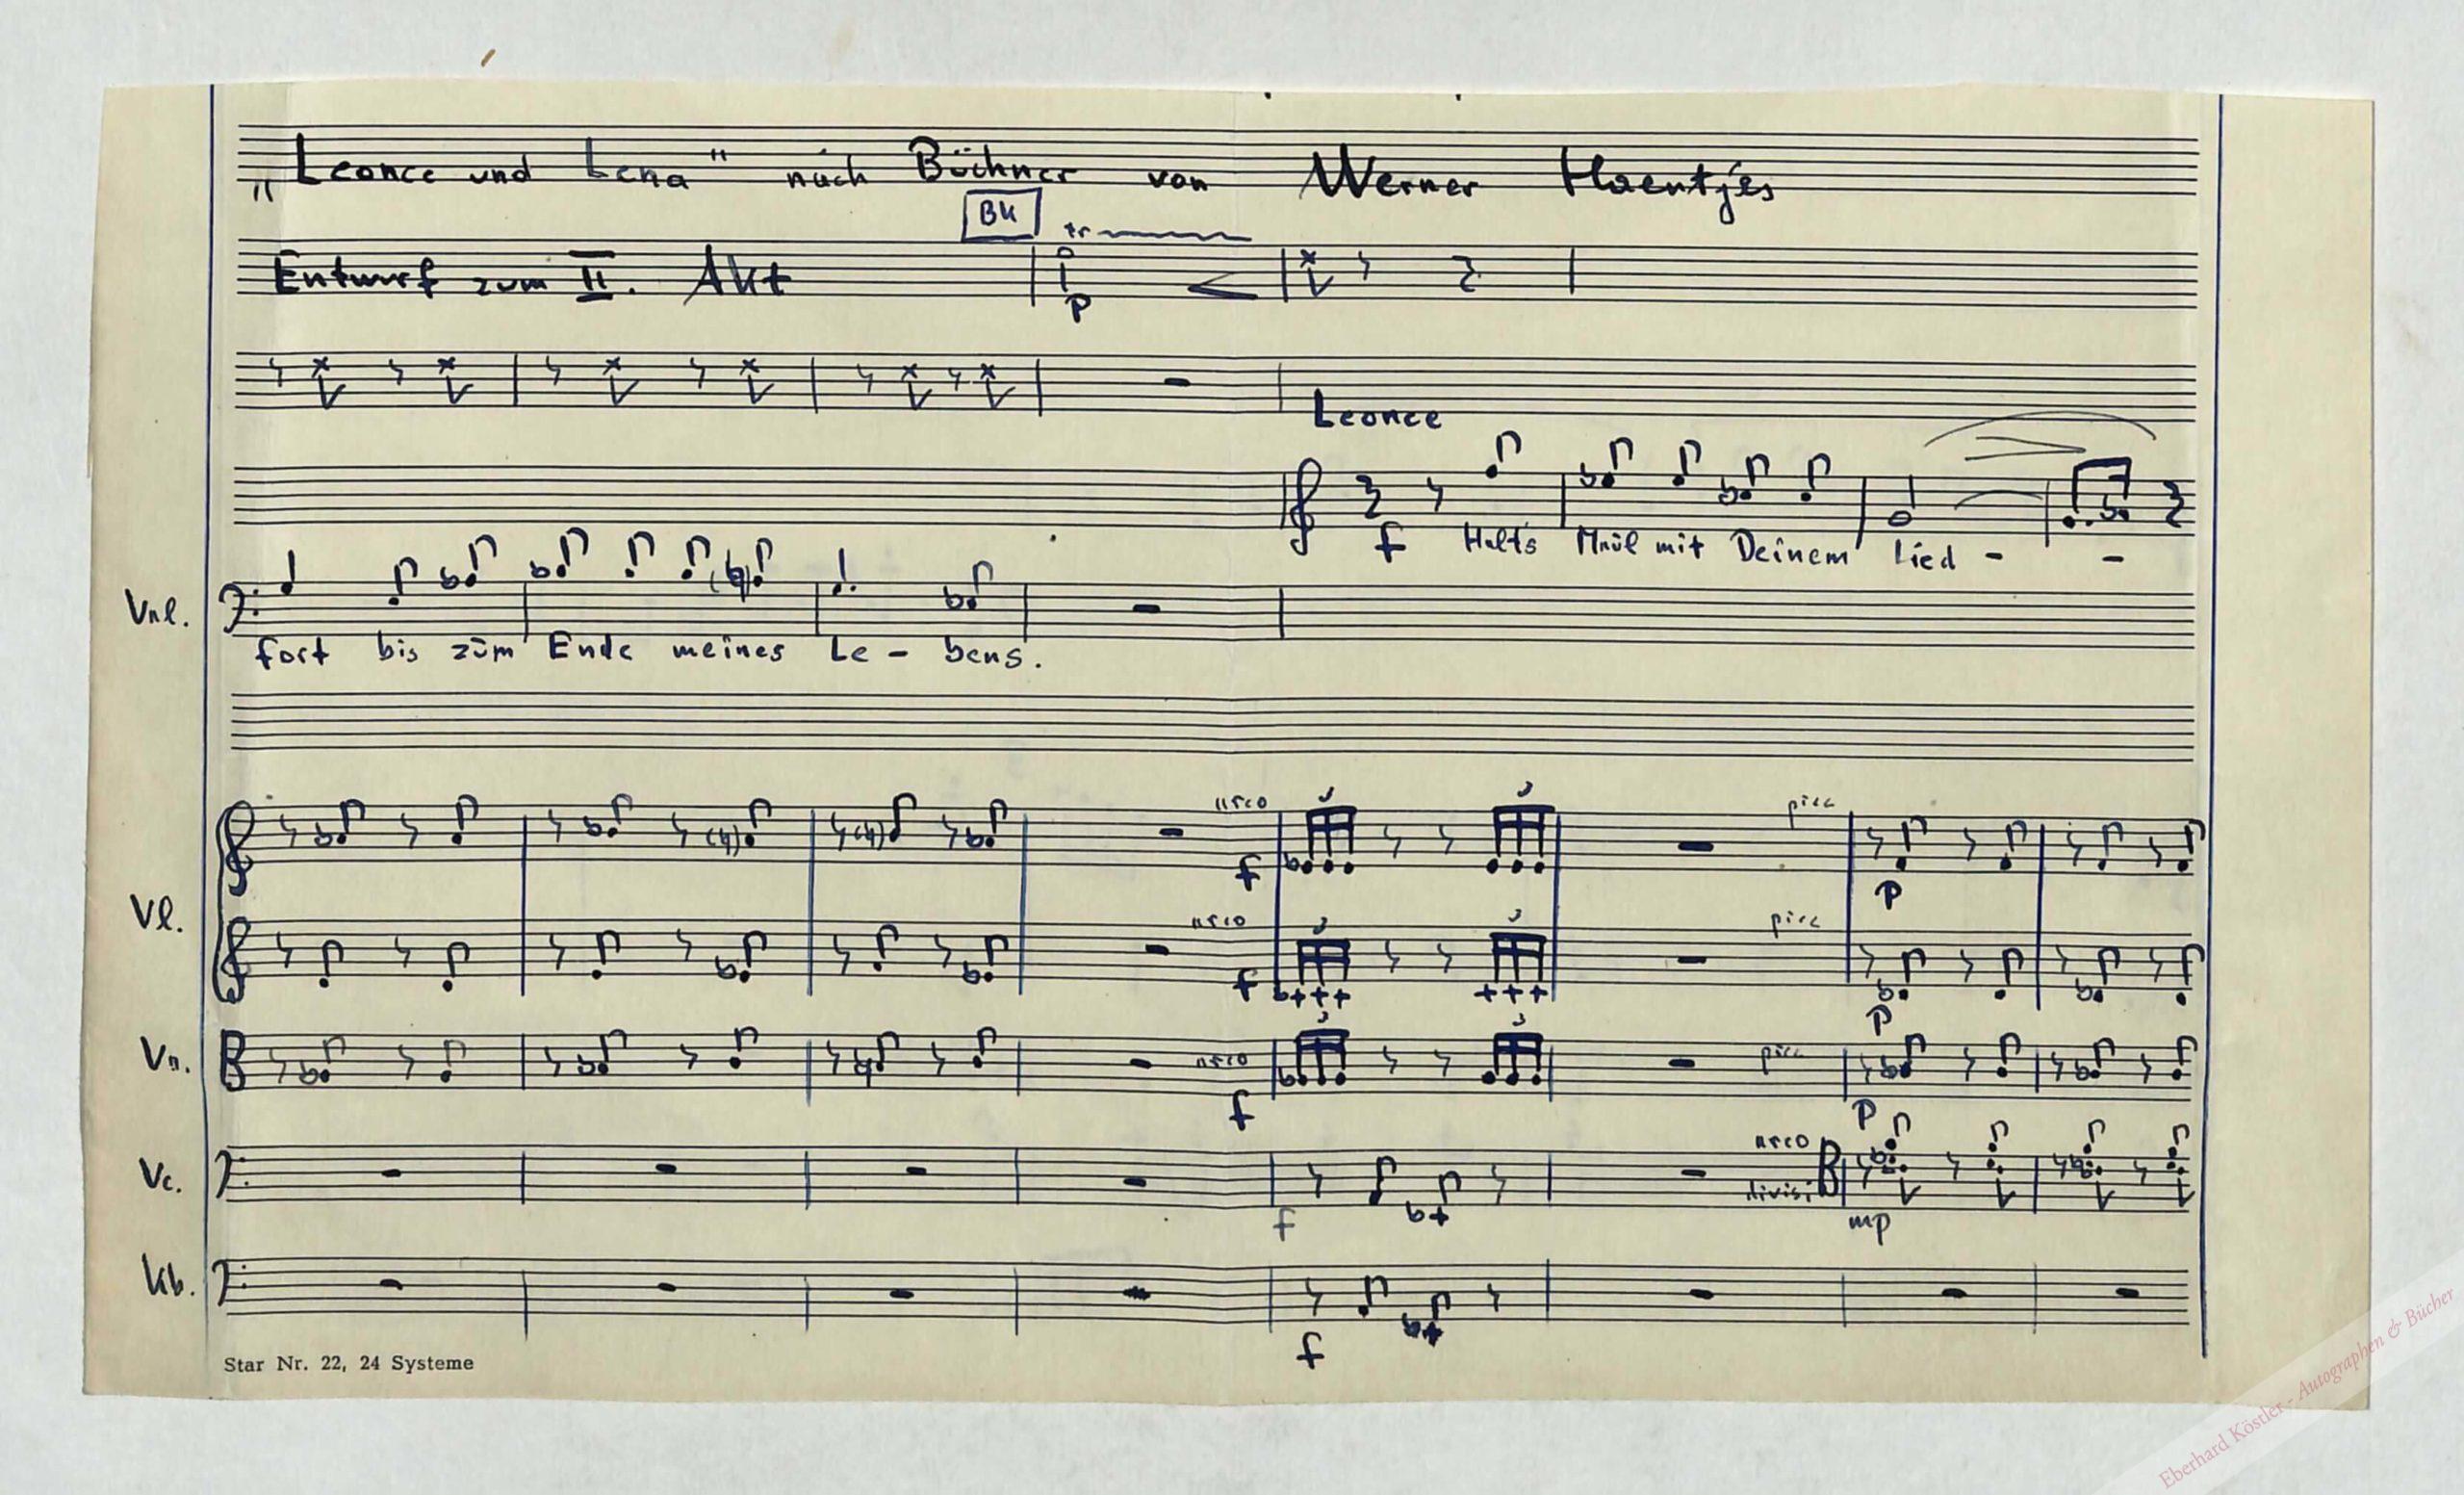 „Leonce und Lena" nach Büchner von Werner Haentjes
BK
tr
Entwurf zum II. Akt
p
Leonce
f Halts Maul mit Deinem Lied - -
Val.
fort bis zum Ende meines Le - bens.
arco
pizz
3 3
f
p
Vl.
arco
pizz
3 3
f
p
Va.
arco
pizz
3 3
f
p
Vc.
arco
divisi
f
mp
Kb.
f
Star Nr. 22, 24 Systeme
Eberhard Köstler - Autographen & Bücher